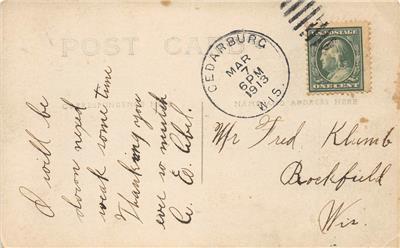 POST CARD
CEDARBURG
MAR
7
6 PM
1913
WIS.
U.S. POSTAGE
ONE CENT
CORRESPONDENCE
NAME AND ADDRESS HERE
I will be
down nexd
weak some time
Thanking you
ever so mutch
C. W. Abel.
Mr Fred Klumb
Rockfield
Wis.